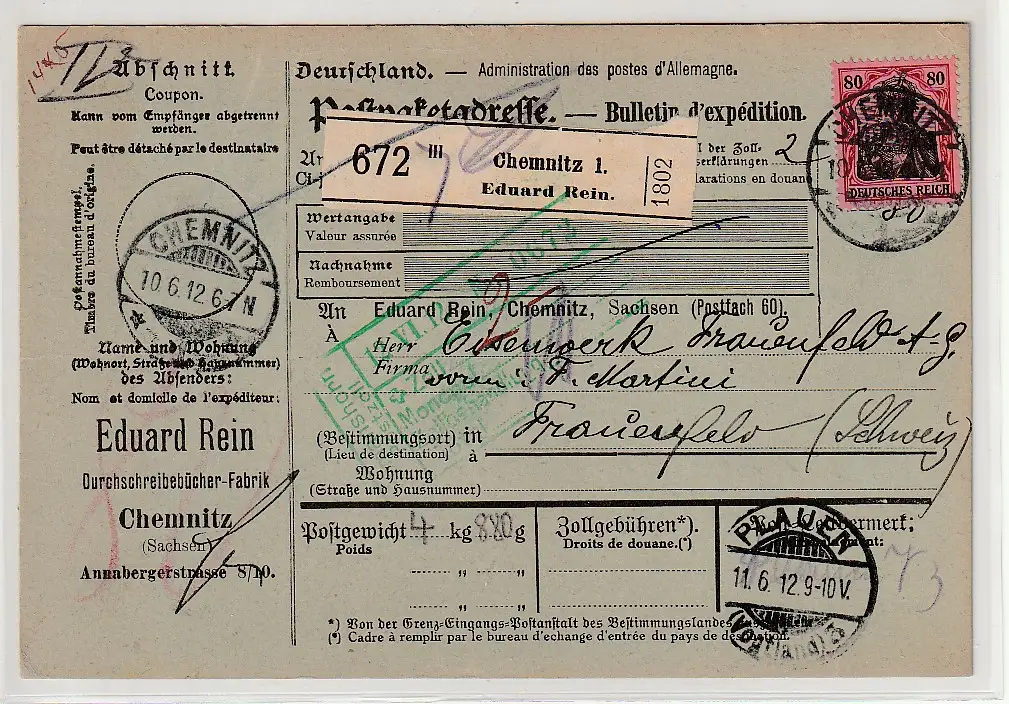 II a
Abschnitt.
Coupon.
Kann vom Empfänger abgetrennt
werden.
Peut être détaché par le destinataire
Postannahmestempel.
Timbre du bureau d'origine.
CHEMNITZ
10.6.12.6-7N
Name und Wohnung
(Wohnort, Straße und Hausnummer)
des Absenders:
Nom et domicile de l'expéditeur:
Eduard Rein
Durchschreibebücher-Fabrik
Chemnitz
(Sachsen)
Annabergerstrasse 8/10.
Deutschland. — Administration des postes d'Allemagne.
Postpaketadresse. — Bulletin d'expédition.
672 III
Chemnitz 1.
Eduard Rein.
1802
l der Zoll-
serklärungen 2
larations en douane
80 80
DEUTSCHES REICH
CHEMNITZ
Wertangabe
Valeur assurée
Nachnahme
Remboursement
An Eduard Rein, Chemnitz, Sachsen (Postfach 60).
À Herr Eisenwerk Frauenfeld A.-G.
Firma vorm: F. Martini
(Bestimmungsort) in Frauenfeld (Schweiz)
(Lieu de destination) à
Wohnung
(Straße und Hausnummer)
Postgewicht 4 kg 880 g
Poids
" "
" "
Zollgebühren*).
Droits de douane.(*)
PLAUEN
11.6.12.9-10V.
(Vogtland) 3
*) Von der Grenz-Eingangs-Postanstalt des Bestimmungslandes
(*) Cadre à remplir par le bureau d'échange d'entrée du pays de destination.